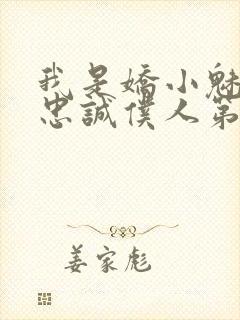 我是嬌小魅
忠誠僕人第
姜家彪